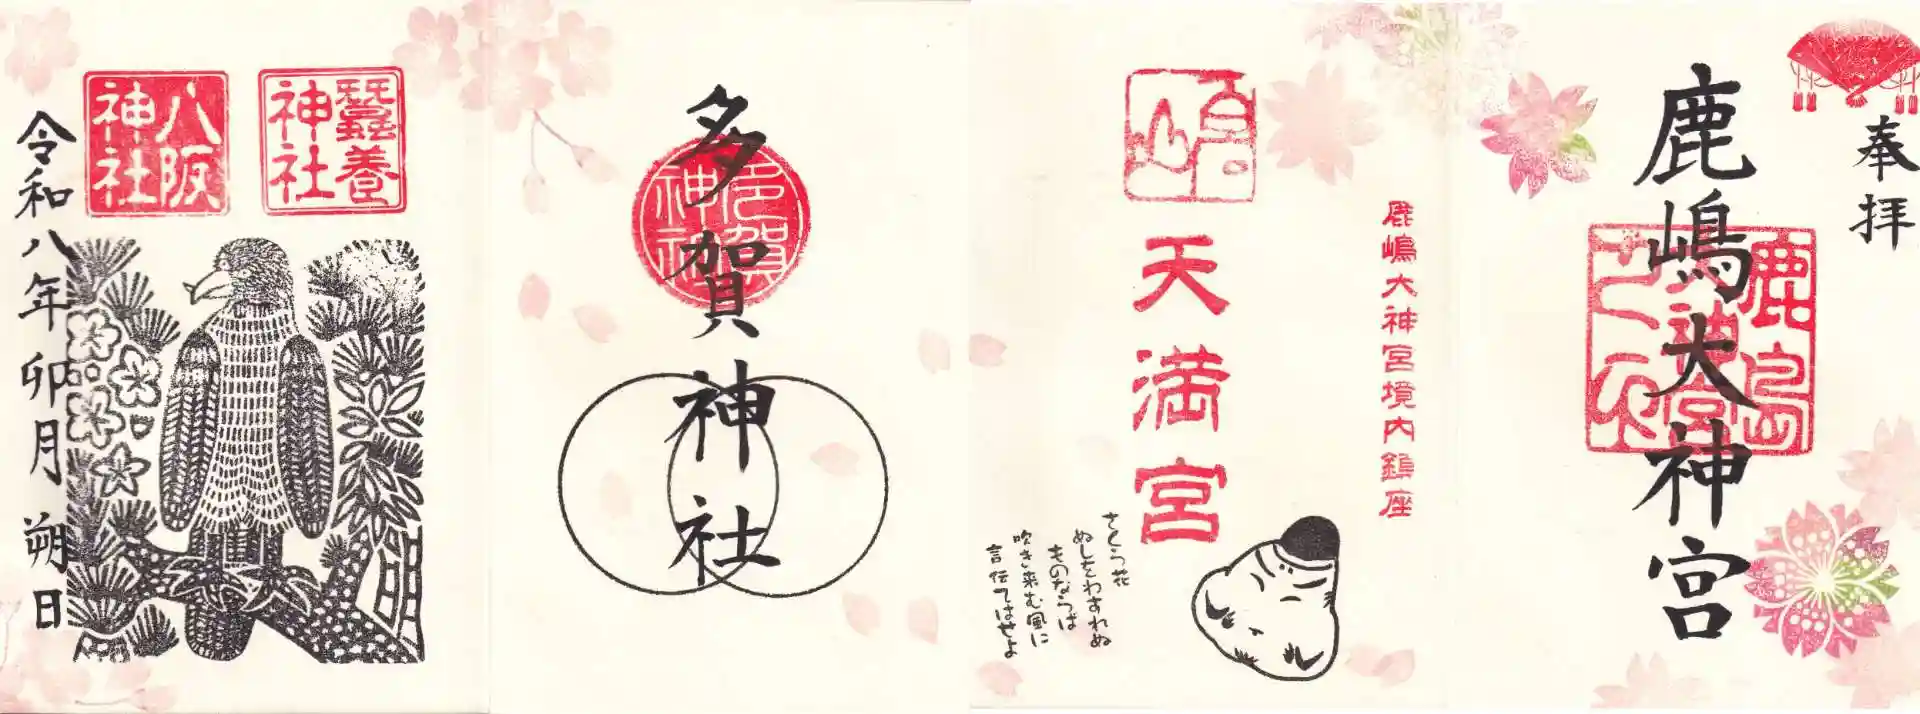 奉拝
鹿嶋大神宮
鹿島
神宮
鹿嶋大神宮境内鎮座
天満宮
さくら花
ぬしをわすれぬ
ものならば
吹き来む風に
言伝てはせよ
多賀神社
多賀
神社
蠶養
神社
八阪
神社
令和八年卯月朔日